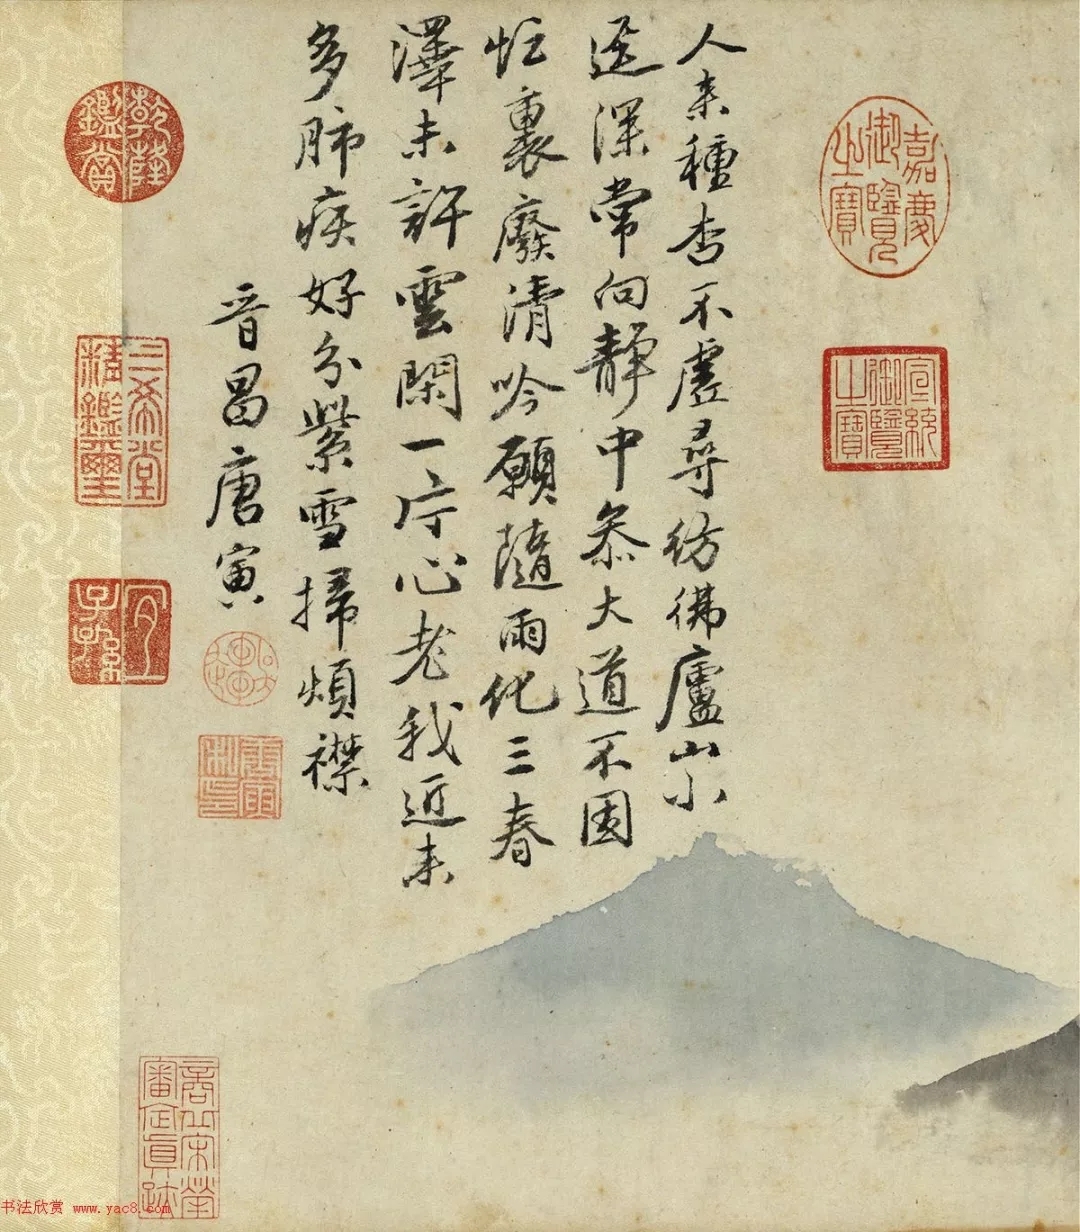 嘉慶御覽之寶
宣統御覽之寶
人来種杏不虛尋彷彿廬山小
逕深常向靜中叅大道不因
忙裏廢清吟願隨雨化三春
澤未許雲閑一片心老我近来
多肺疾好分紫雪掃煩襟
晋昌唐寅
唐寅私印
乾隆鑑賞
三希堂精鑑璽
宜子孫
商丘宋犖審定真跡
书法欣赏 www.yac8.com